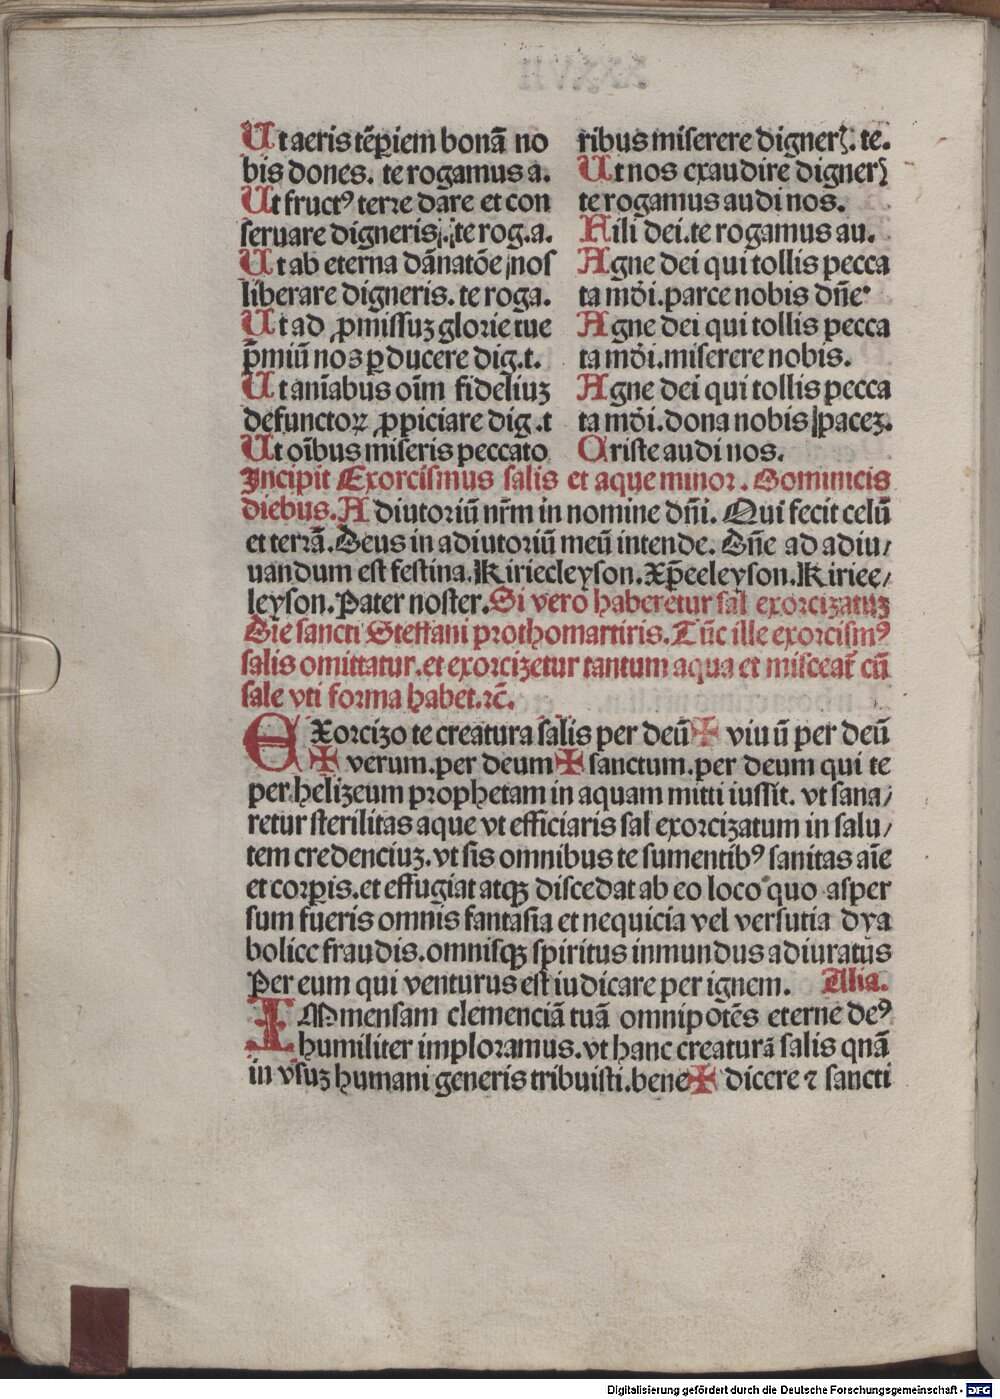 Ut aeris tēꝑiem bonā no
bis dones. te rogamus a.
Ut fructꝰ terre dare et con
seruare digneris. te rog.a.
Ut ab eterna dānatōe nos
liberare digneris. te roga.
Ut ad ꝓmissuz glorie tue
p̄miū nos ꝑducere dig.t.
Ut aīabus oīm fideliuz
defunctoꝝ ꝓpiciare dig.t
Ut oībus miseris peccato
ribus miserere digner̄. te.
Ut nos exaudire digner̄
te rogamus audi nos.
Fili dei.te rogamus au.
Agne dei qui tollis pecca
ta mōi.parce nobis dn̄e
Agne dei qui tollis pecca
ta mōi.miserere nobis.
Agne dei qui tollis pecca
ta mōi.dona nobis pacez.
Criste audi nos.
Incipit Exorcismus salis et aque minor. Dominicis
diebus. Adiutoriū nr̄m in nomine dn̄i. Qui fecit celū
et terrā.Deus in adiutoriū meū intende. Dn̄e ad adiu/
uandum est festina.Kirieeleyson.Xp̄eeleyson.Kiriee/
leyson.Pater noster.Si vero haberetur sal exorcizatuz
Die sancti Steffani prothomartiris.Tūc ille exorcismꝰ
salis omittatur.et exorcizetur tantum aqua et misceat̄ cū
sale vti forma habet.rc̄.
EXorcizo te creatura salis per deū✠ viuū per deū
✠ verum.per deum✠sanctum.per deum qui te
per.helizeum prophetam in aquam mitti iussit. vt sana/
retur sterilitas aque vt efficiaris sal exorcizatum in salu/
tem credenciuz.vt sis omnibus te sumentibꝰ sanitas aīe
et corꝑis.et effugiat atqꝫ discedat ab eo loco quo asper
sum fueris omnis fantasia et nequicia vel versutia dya
bolice fraudis.omnisqꝫ spiritus inmundus adiuratus
Per eum qui venturus est iudicare per ignem. Alia.
IMmensam clemenciā tuā omnipotēs eterne deꝰ
humiliter imploramus.vt hanc creaturā salis qnā
in vsuz humani generis tribuisti.bene✠ dicere ⁊ sancti
Digitalisierung gefördert durch die Deutsche Forschungsgemeinschaft - DFG